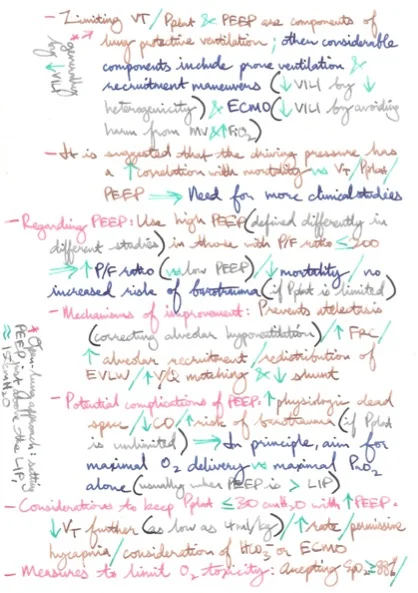 - Limiting VT / Pplat & PEEP are components of
lung protective ventilation ; other considerable
components include prone ventilation &
recruitment maneuvers ( ↓ VILI by ↓
heterogenicity ) & ECMO ( ↓ VILI by avoiding
harm from MV & ↑ FiO2 )
* → generally by ↓ VILI
- It is suggested that the driving pressure has
a ↑ correlation with mortality vs VT / Pplat /
PEEP ⇒ Need for more clinical studies
- Regarding PEEP : Use high PEEP ( defined differently in
different studies ) in those with P/F ratio ≤ 200
⇒ ↑ P/F ratio ( vs low PEEP ) / ↓ mortality / no
increased risk of barotrauma ( if Pplat is limited )
- Mechanisms of improvement : Prevents atelectasis
( correcting alveolar hypoventilation ) / ↑ FRC /
↑ alveolar recruitment / redistribution of
EVLW / ↑ V/Q matching & ↓ shunt
* Open-lung approach : setting
PEEP just above the LIP,
≈ 15 cmH2O
- Potential complications of PEEP : ↑ physiologic dead
space / ↓ CO / ↑ risk of barotrauma ( if Pplat
is unlimited ) ⇒ In principle, aim for
maximal O2 delivery vs maximal PaO2
alone ( usually when PEEP is > LIP )
- Considerations to keep Pplat ≤ 30 cmH2O with ↑ PEEP :
↓ VT further ( as low as 4 ml/kg ) / ↑ rate / permissive
hycapnia / consideration of HCO3- or ECMO
- Measures to limit O2 toxicity : accepting SpO2 ≥ 88% /